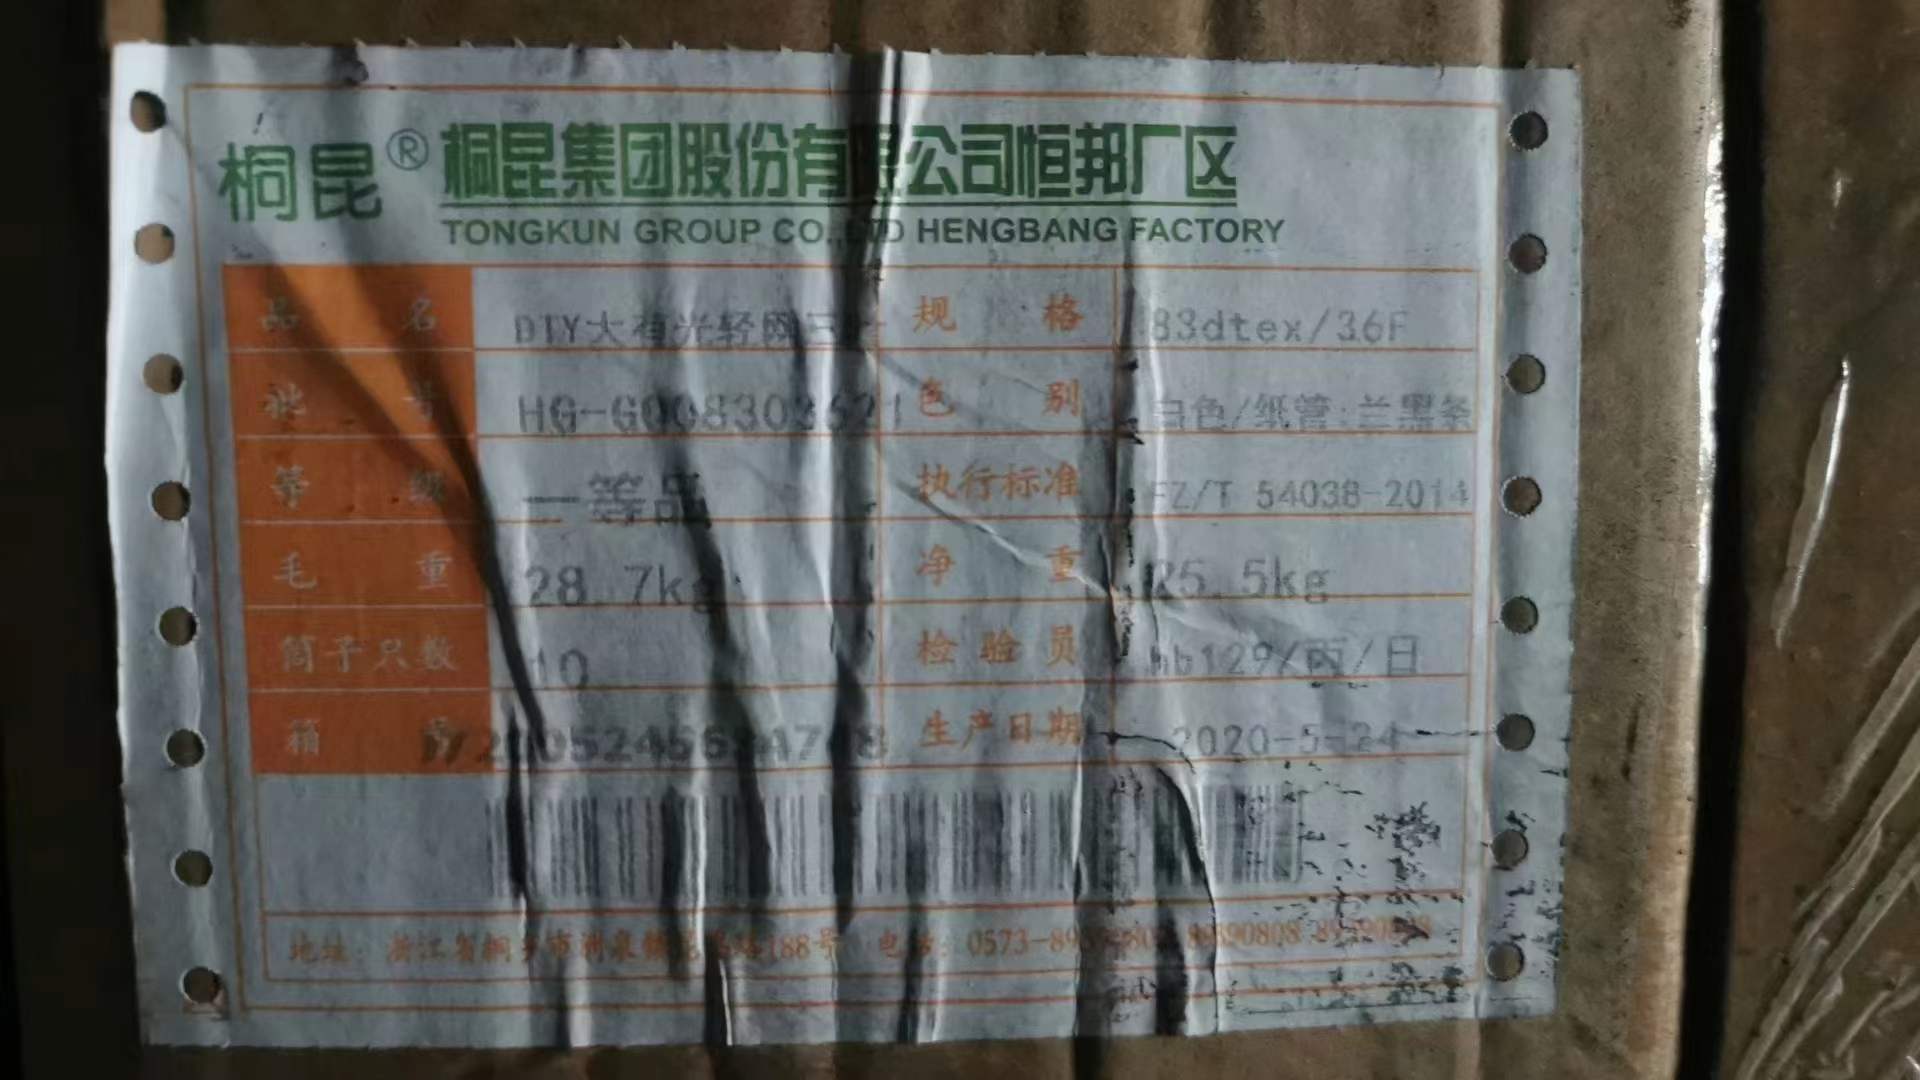 桐昆® 桐昆集团股份有限公司恒邦厂区
TONGKUN GROUP CO.,LTD HENGBANG FACTORY
品名 DTY大有光轻网 规格 83dtex/36F
批号 HG-G008303621 色别 白色/纸管:兰黑条
等级 一等品 执行标准 FZ/T 54038-2014
毛重 28.7kg 净重 25.5kg
筒子只数 10 检验员 hb129/丙/日
箱号 生产日期 2020-5-24
地址: 浙江省桐乡市洲泉镇 188号 电话: 0573-